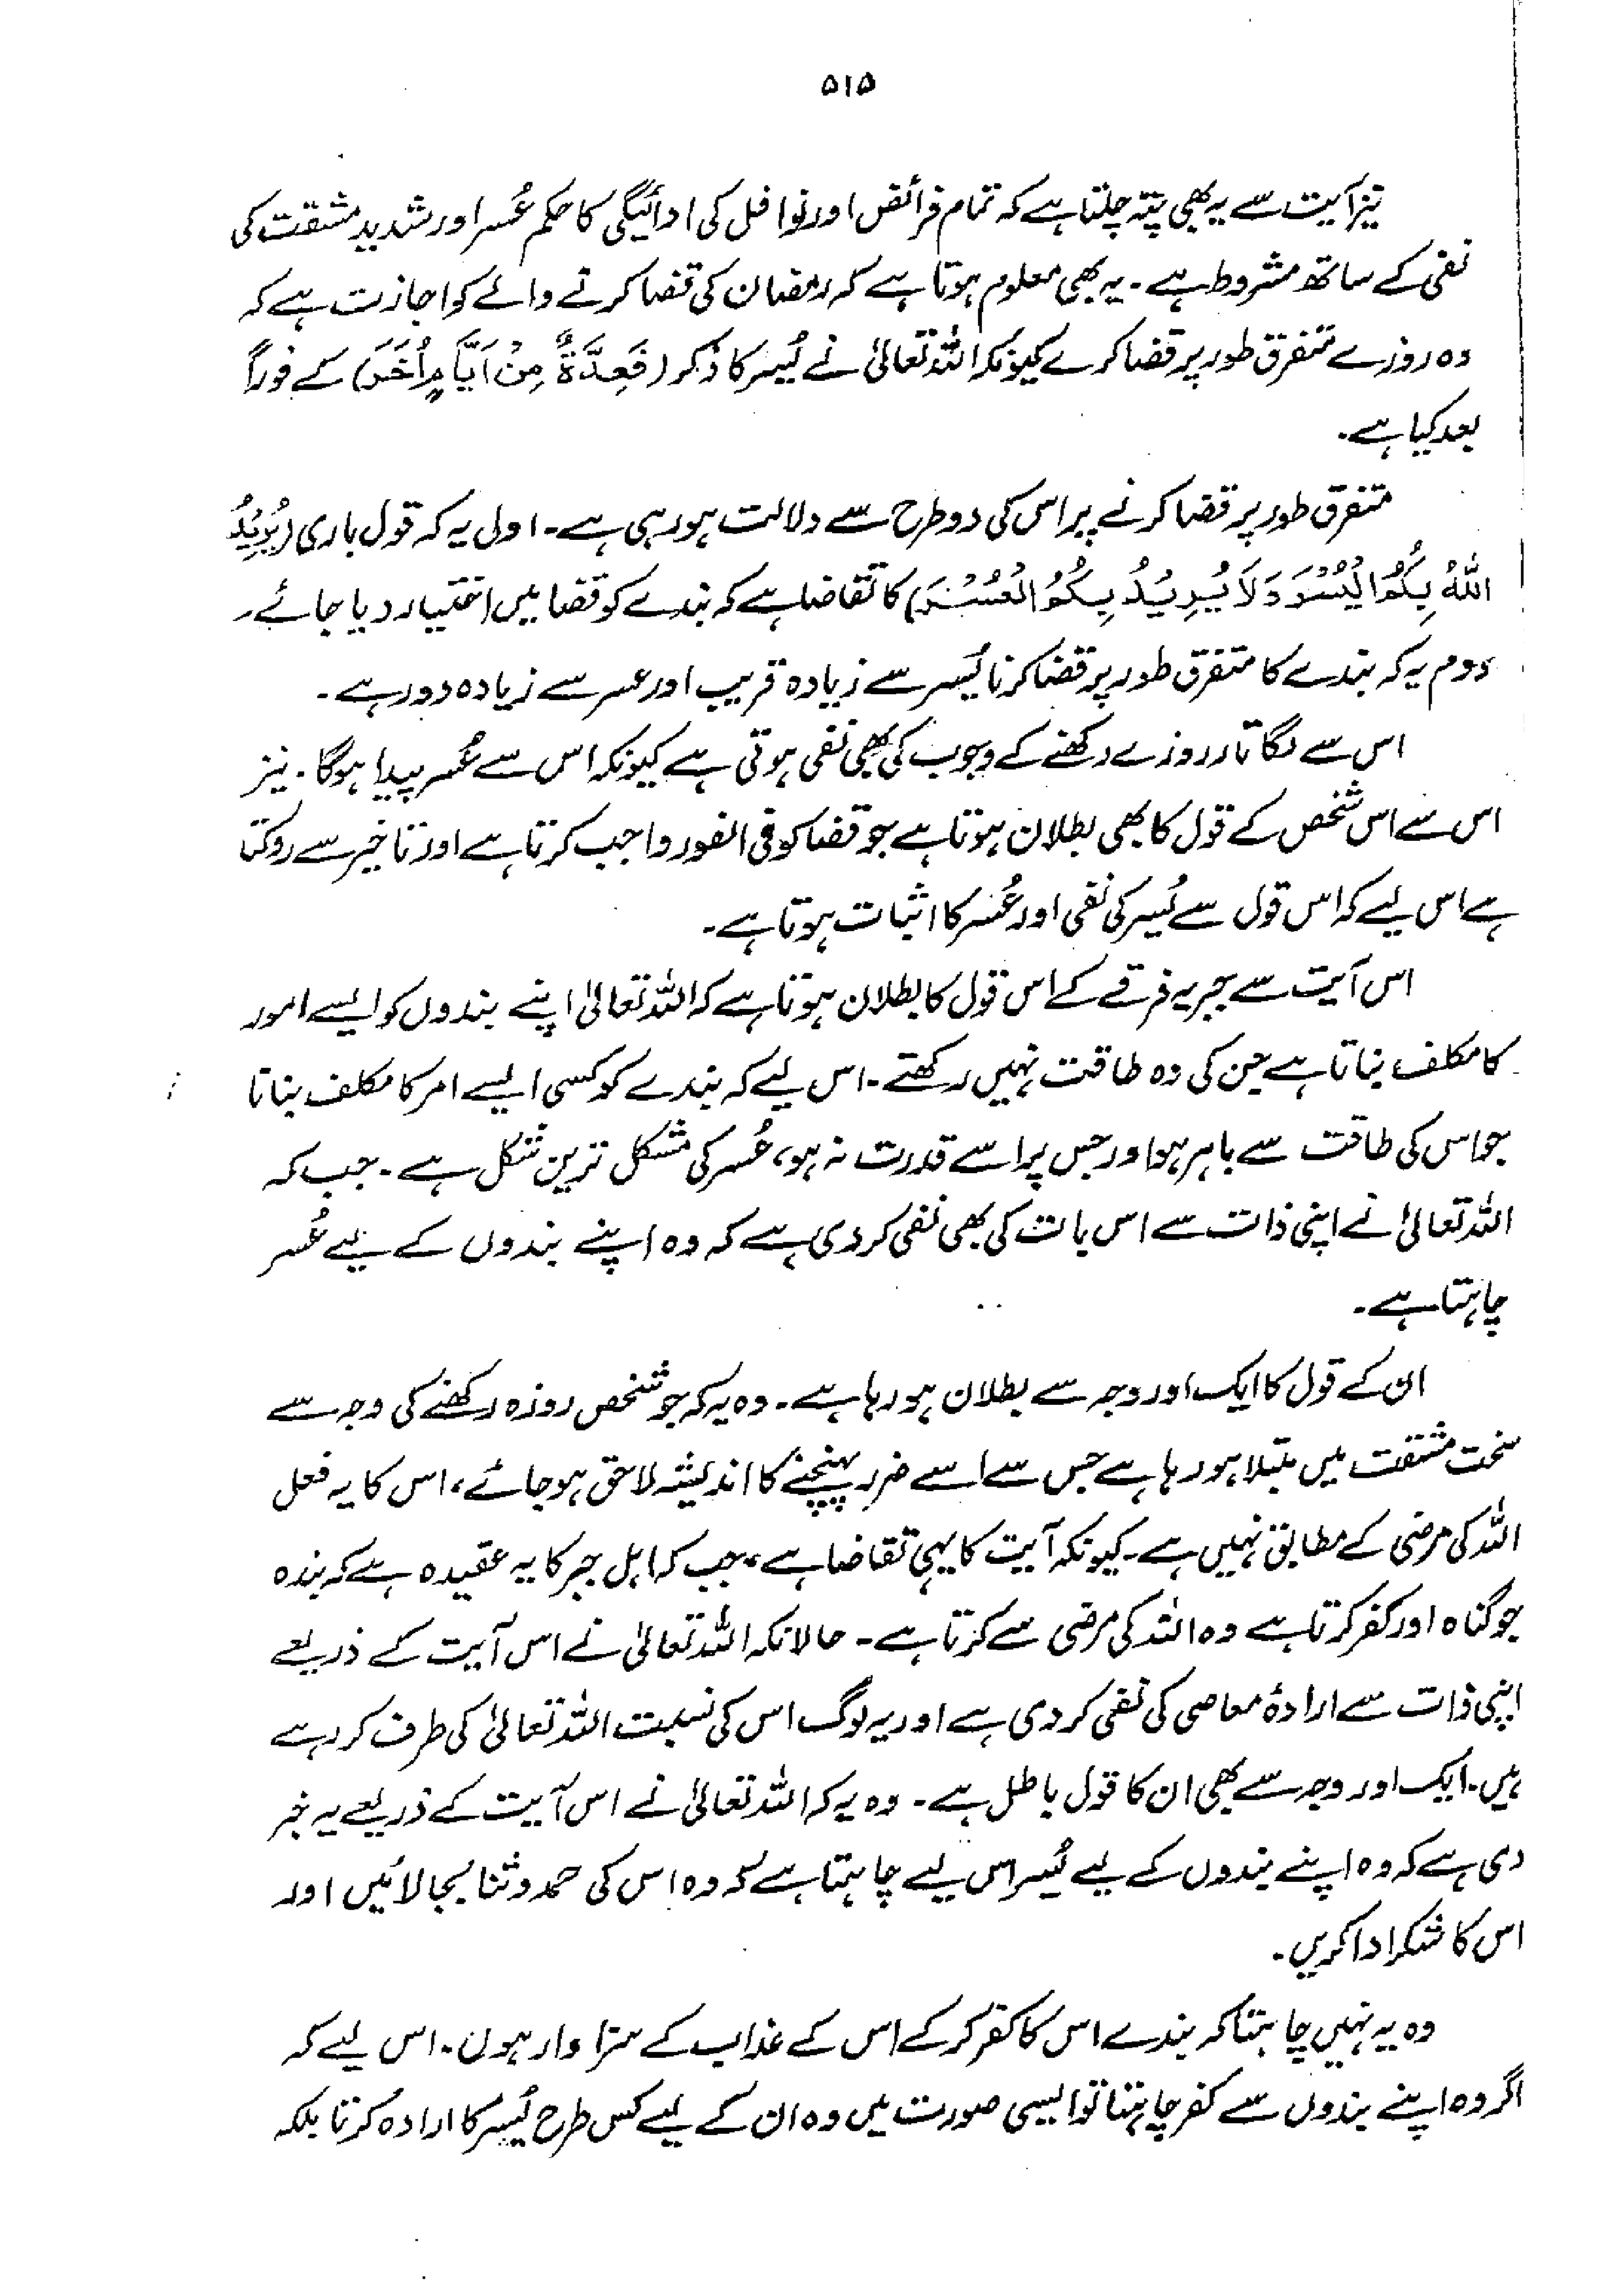 ۵۱۵
نیز آیت سے یہ بھی پتہ چلتا ہے کہ تمام فرائض اور نوافل کی ادائیگی کا حکم عُسر اور شدید مشقت کی
نفی کے ساتھ مشروط ہے۔ یہ بھی معلوم ہوتا ہے کہ رمضان کی قضا کرنے والے کو اجازت ہے کہ
وہ روزے متفرق طور پر قضا کرے کیونکہ اللہ تعالیٰ نے یُسر کا ذکر (فَعِدَّةٌ مِنْ اَیَّامٍ اُخَرَ) کے فوراً
بعد کیا ہے۔
متفرق طور پر قضا کرنے پر اس کی دو طرح سے دلالت ہو رہی ہے۔ اولی یہ کہ قول باری (یُرِیْدُ
اللہُ بِکُمُ الْیُسْرَ وَلَا یُرِیْدُ بِکُمُ الْعُسْرَ) کا تقاضا ہے کہ بندے کو قضا میں اختیار دیا جائے۔
دوم یہ کہ بندے کا متفرق طور پر قضا کرنا یُسر سے زیادہ قریب اور عسر سے زیادہ دور ہے۔
اس سے لگاتار روزے رکھنے کے وجوب کی بھی نفی ہوتی ہے کیونکہ اس سے عُسر پیدا ہوگا۔ نیز
اس سے اس شخص کے قول کا بھی بطلان ہوتا ہے جو قضا کو فی الفور واجب کرتا ہے اور تاخیر سے روکتا
ہے اس لیے کہ اس قول سے یُسر کی نفی اور عُسر کا اثبات ہوتا ہے۔
اس آیت سے جبریہ فرقے کے اس قول کا بطلان ہوتا ہے کہ اللہ تعالیٰ اپنے بندوں کو ایسے امور
کا مکلف بناتا ہے جن کی وہ طاقت نہیں رکھتے۔ اس لیے کہ بندے کو کسی ایسے امر کا مکلف بنانا
جو اس کی طاقت سے باہر ہو اور جس پر اسے قدرت نہ ہو، عُسر کی مشکل ترین شکل ہے۔ جب کہ
اللہ تعالیٰ نے اپنی ذات سے اس بات کی بھی نفی کر دی ہے کہ وہ اپنے بندوں کے لیے عُسر
چاہتا ہے۔
ان کے قول کا ایک اور وجہ سے بطلان ہو رہا ہے۔ وہ یہ کہ جو شخص روزہ رکھنے کی وجہ سے
سخت مشقت میں مبتلا ہو رہا ہے جس سے اسے ضرر پہنچنے کا اندیشہ لاحق ہو جائے، اس کا یہ فعل
اللہ کی مرضی کے مطابق نہیں ہے۔ کیونکہ آیت کا یہی تقاضا ہے، جب کہ اہل جبر کا یہ عقیدہ ہے کہ بندہ
جو گناہ اور کفر کرتا ہے وہ اللہ کی مرضی سے کرتا ہے۔ حالانکہ اللہ تعالیٰ نے اس آیت کے ذریعے
اپنی ذات سے ارادۂ معاصی کی نفی کر دی ہے اور یہ لوگ اس کی نسبت اللہ تعالیٰ کی طرف کر رہے
ہیں۔ ایک اور وجہ سے بھی ان کا قول باطل ہے۔ وہ یہ کہ اللہ تعالیٰ نے اس آیت کے ذریعے یہ خبر
دی ہے کہ وہ اپنے بندوں کے لیے یُسر اس لیے چاہتا ہے کہ وہ اس کی حمد و ثنا بجا لائیں اور
اس کا شکر ادا کریں۔
وہ یہ نہیں چاہتا کہ بندے اس کا کفر کرکے اس کے عذاب کے سزاوار ہوں۔ اس لیے کہ
اگر وہ اپنے بندوں سے کفر چاہتا تو ایسی صورت میں وہ ان کے لیے کس طرح یُسر کا ارادہ کرتا بلکہ